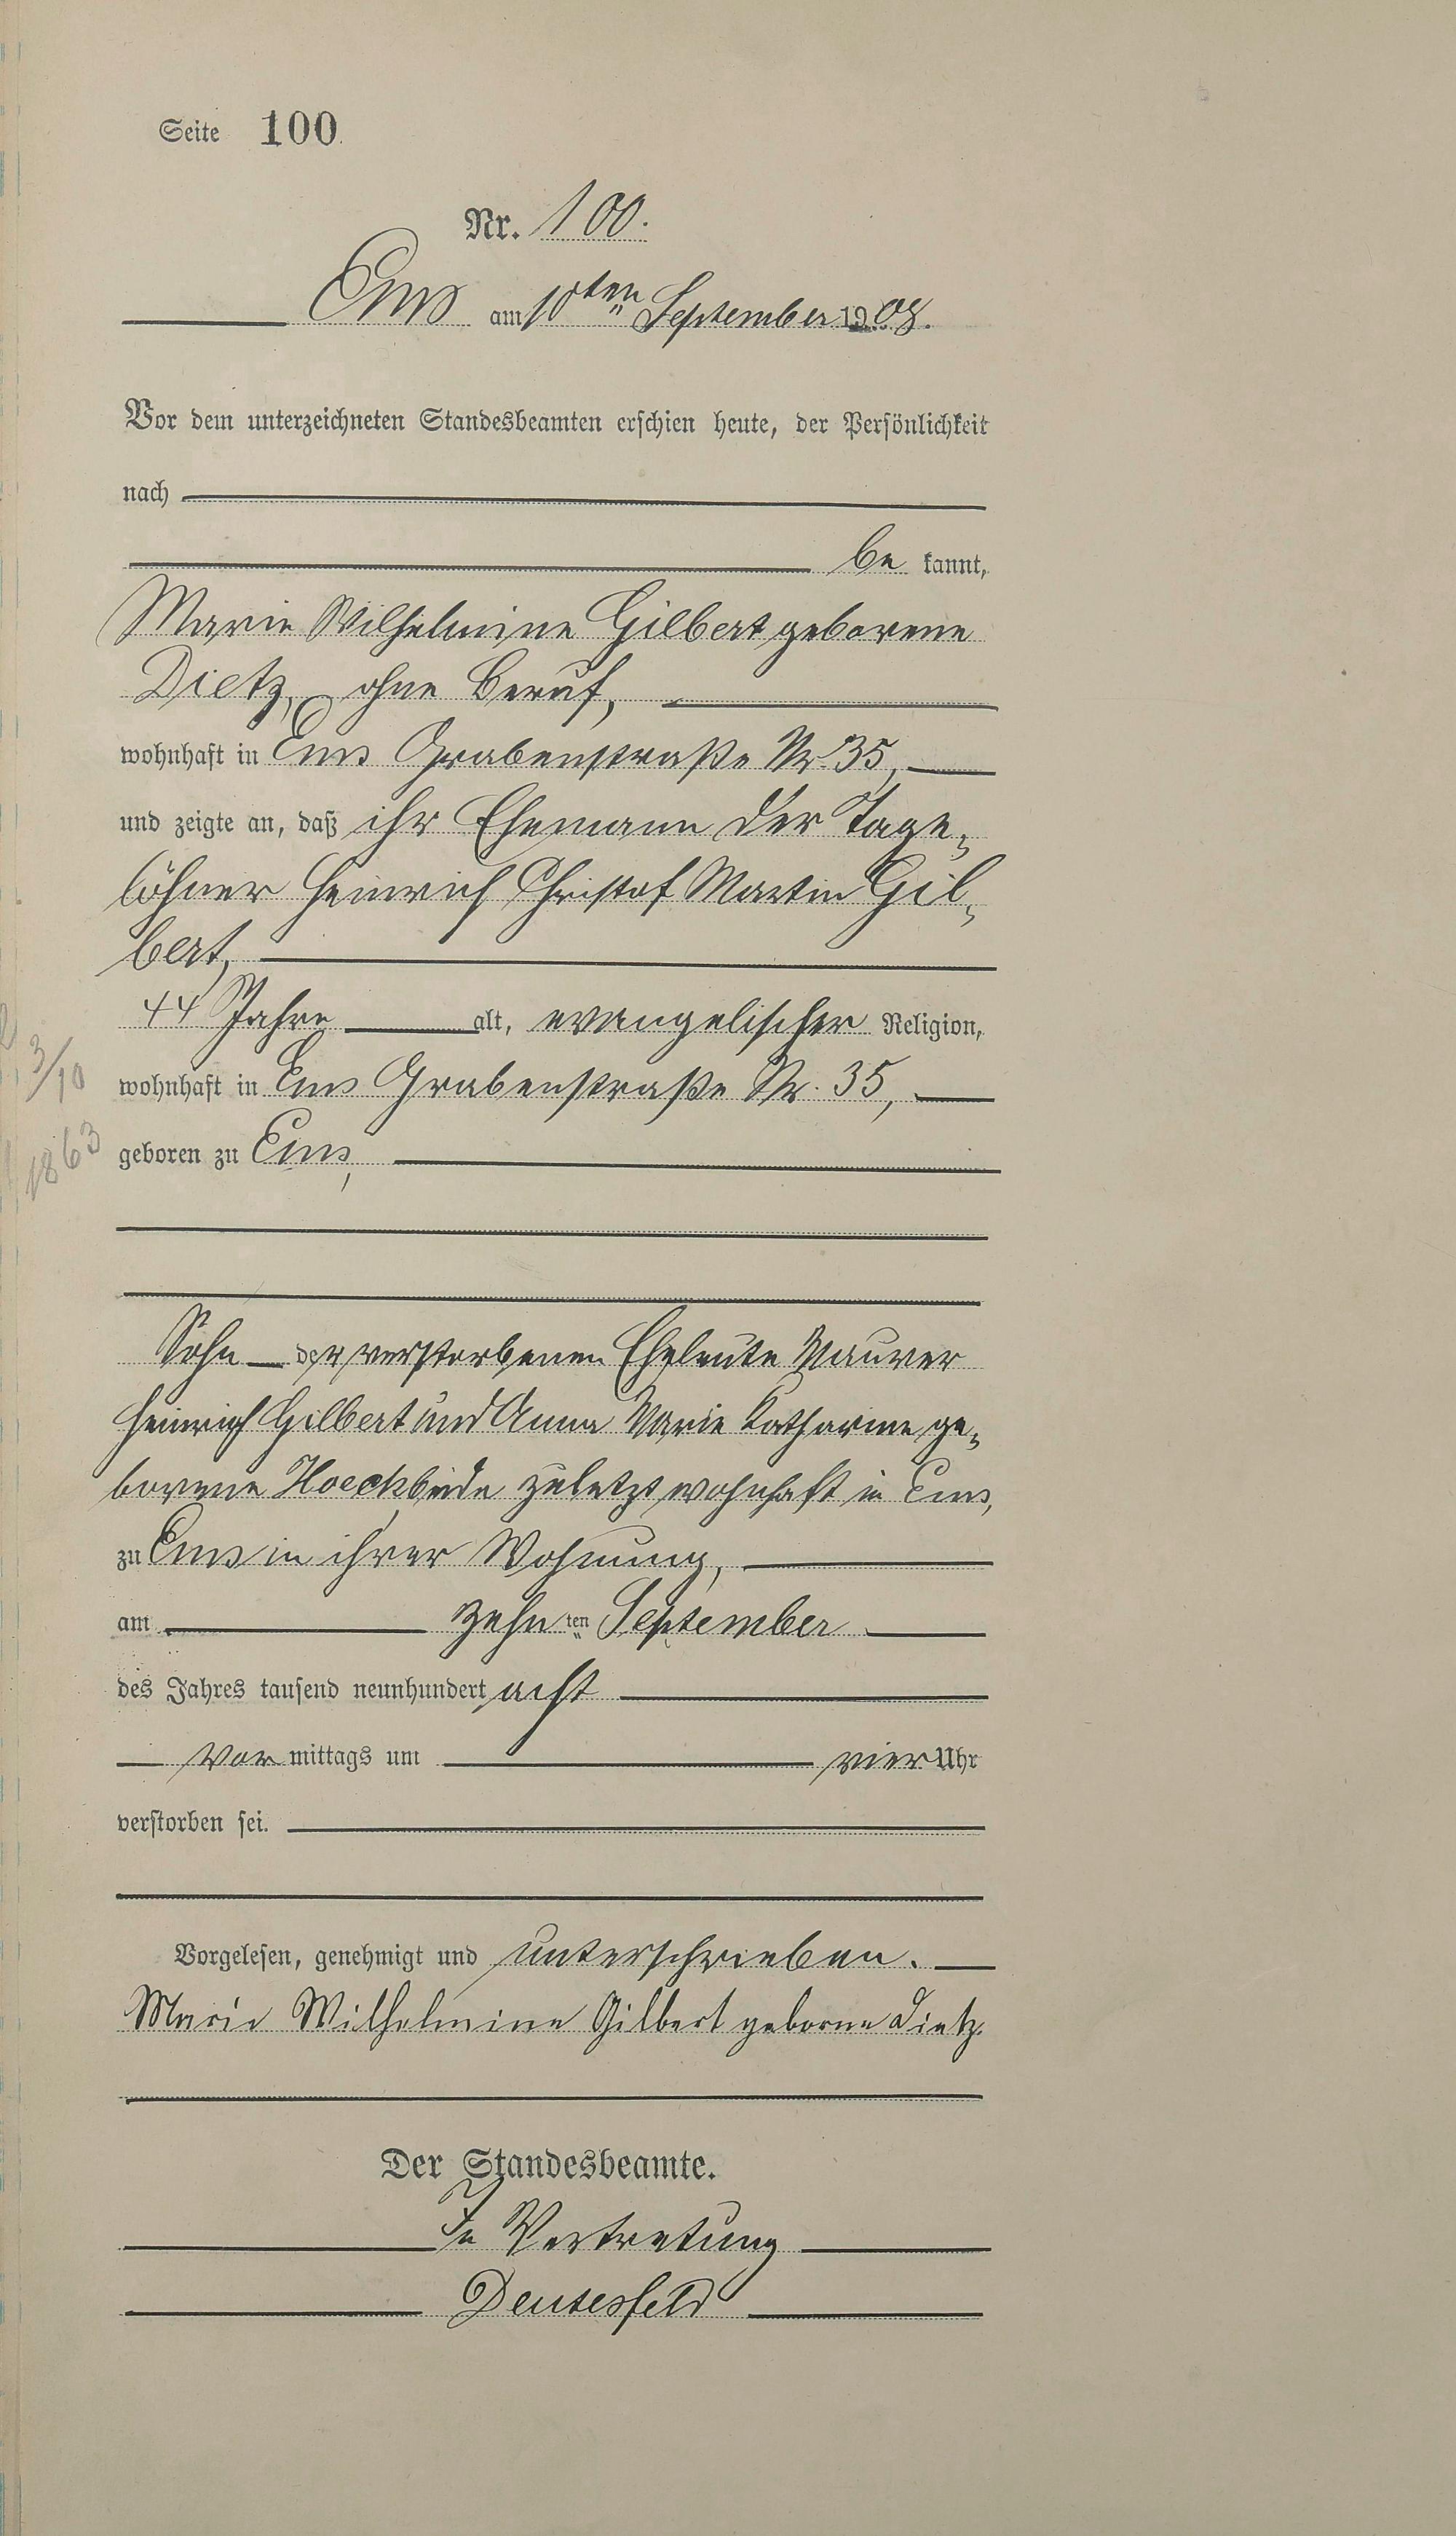 Seite 100.
Nr. 100.
Ems am 10ten September 1908.
Vor dem unterzeichneten Standesbeamten erschien heute, der Persönlichkeit
nach
be kannt,
Marie Wilhelmine Gilbert geborene
Dietz, ohne Beruf,
wohnhaft in Ems Grabenstraße Nr. 35,
und zeigte an, daß ihr Ehemann der Tage-
löhner Heinrich Christof Martin Gil-
bert,
44 Jahre alt, evangelischer Religion,
3/10
wohnhaft in Ems Grabenstraße Nr. 35,
1863
geboren zu Ems,
Sohn der verstorbenen Eheleute Maurer
Heinrich Gilbert und Anna Marie Katharine ge-
borene Hoeck, beide zuletzt wohnhaft in Ems,
zu Ems in ihrer Wohnung,
am zehnten September
des Jahres tausend neunhundert acht
Vor mittags um vier Uhr
verstorben sei.
Vorgelesen, genehmigt und unterschrieben.
Marie Wilhelmine Gilbert geborne Dietz.
Der Standesbeamte.
In Vertretung
Deusesfeld